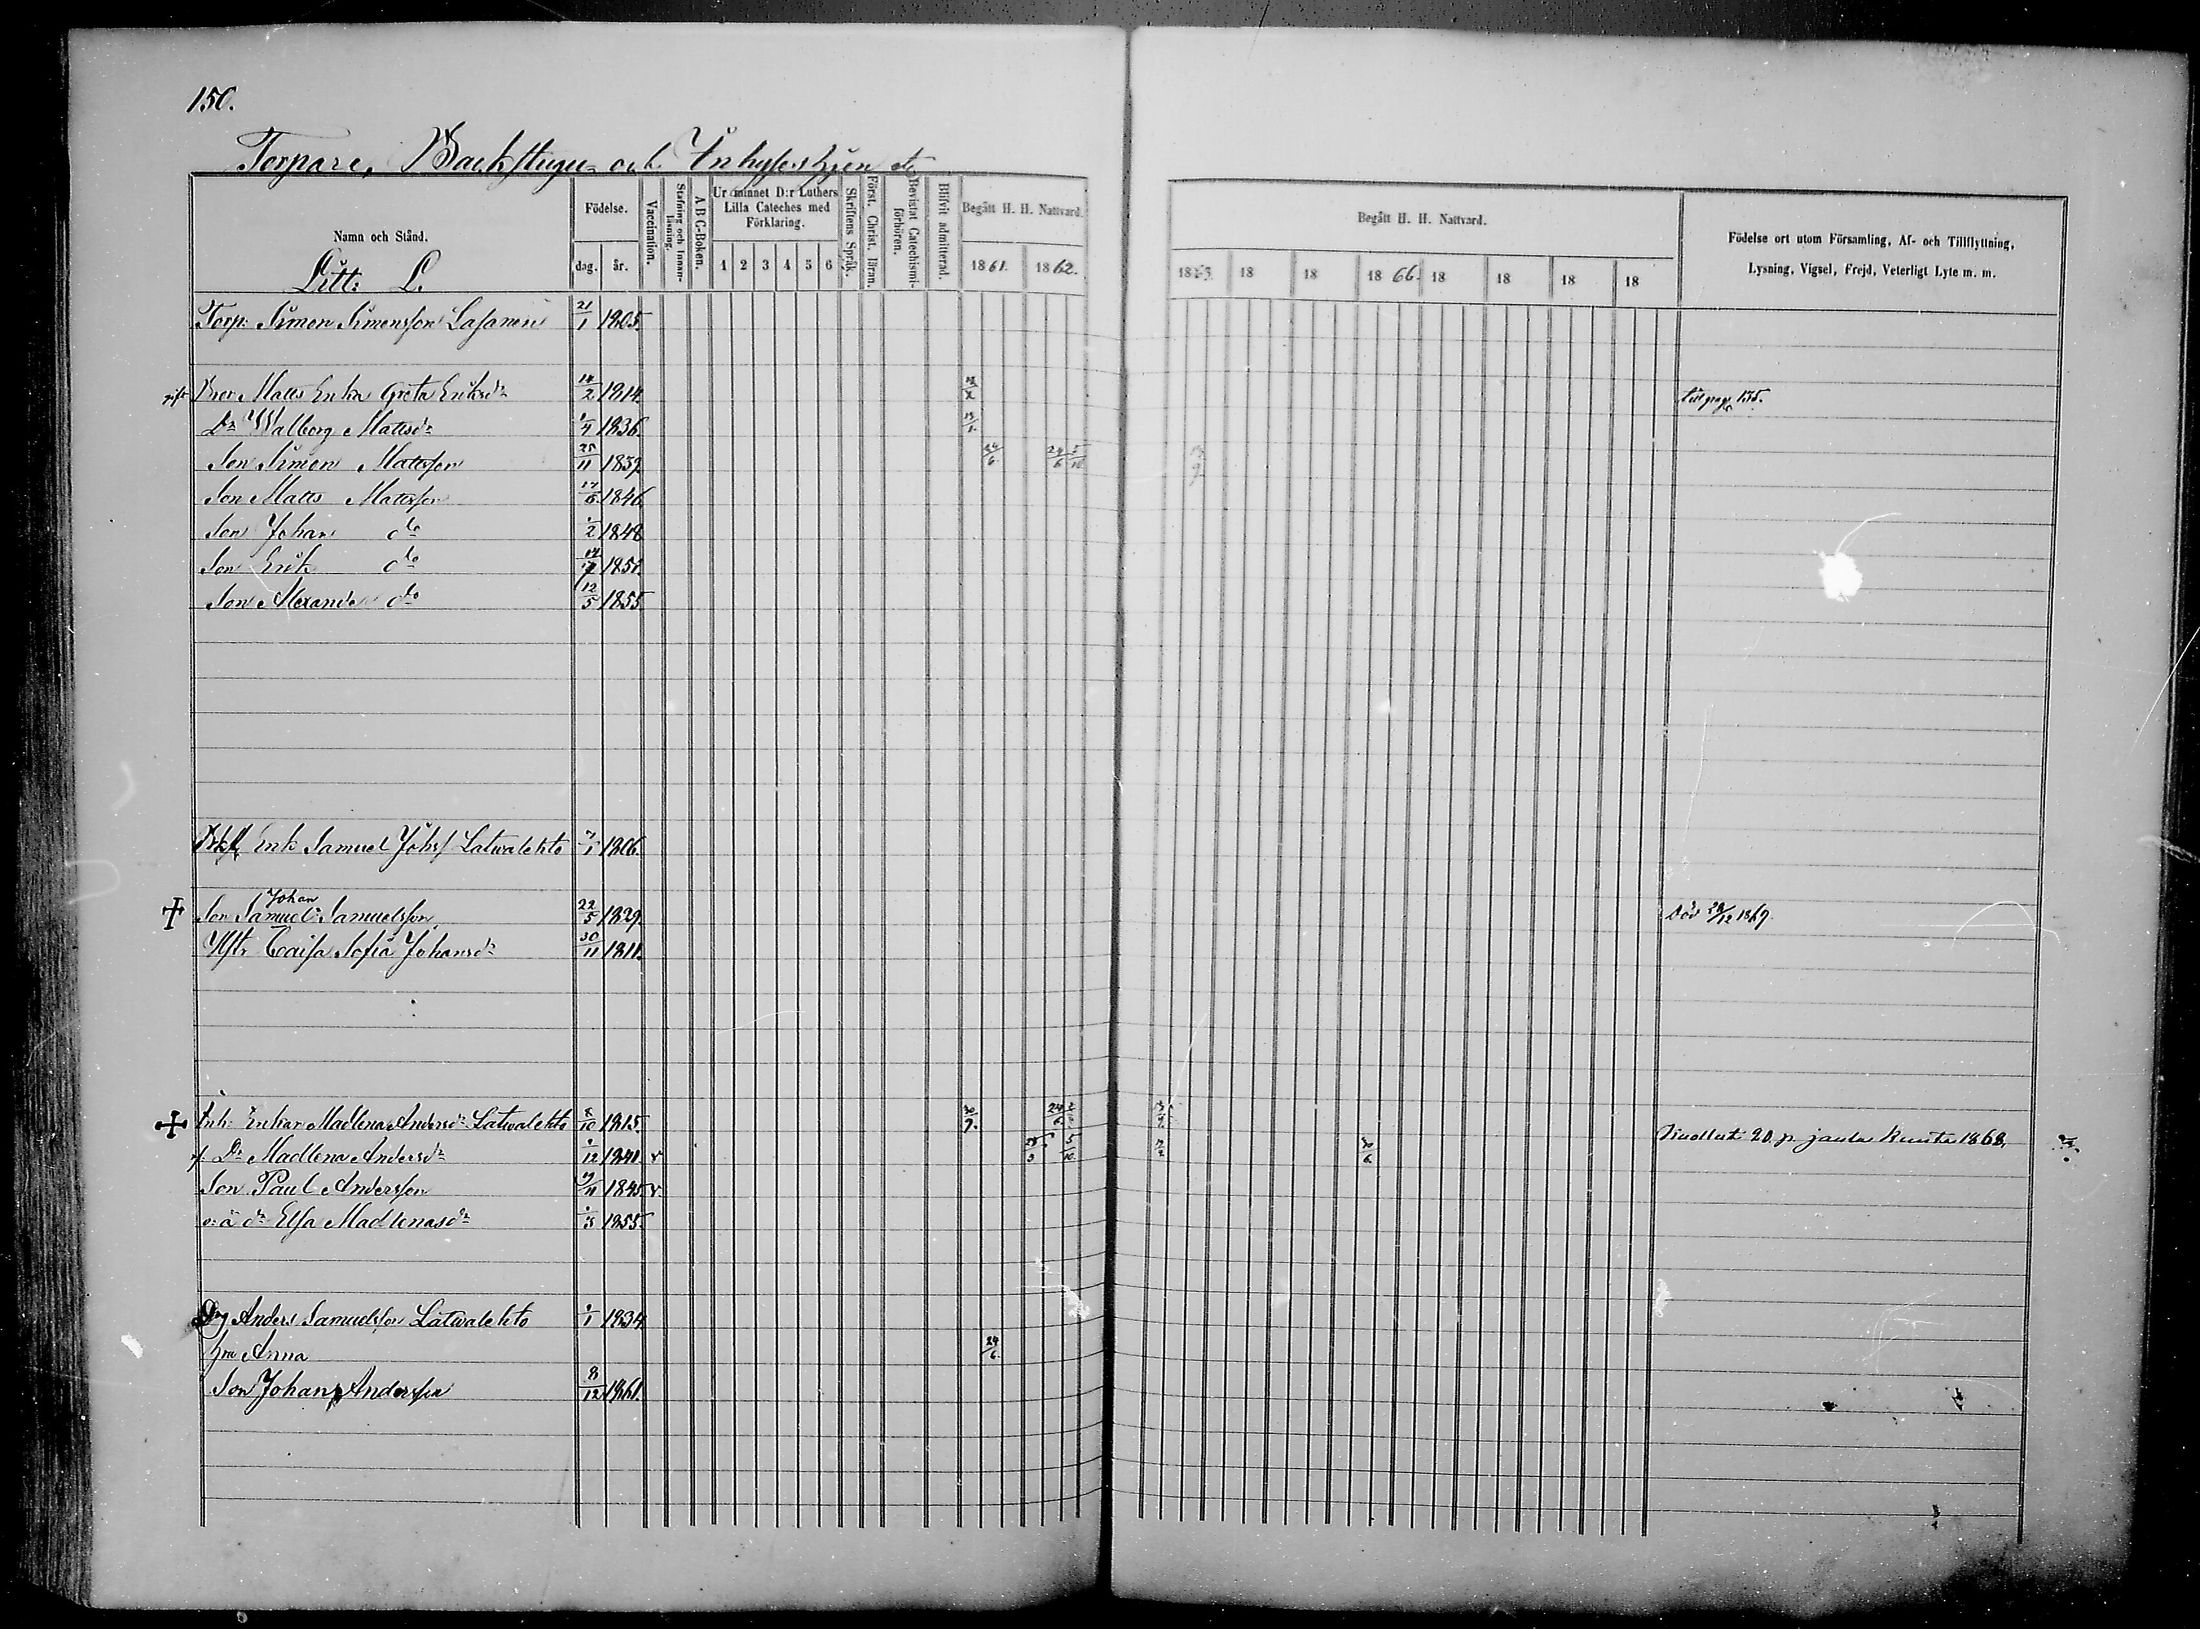 150.
Torpare, Backstugu- och Inhyseshjon etc
Namn och Stånd. Födelse. dag. år. Vaccination. Stafning och Innan-läsning. A B C-Boken. Ur minnet D:r Luthers Lilla Cateches med Förklaring. 1 2 3 4 5 6 Skriftens Språk. Först. Christ. läran. Bevistat Catechismi-förhören. Blifvit admitterad. Begått H. H. Nattvard. 1861. 1862.
Begått H. H. Nattvard. 1863. 18 18 1866. 18 18 18 18
Födelse ort utom Församling, Af- och Tillflyttning,
Lysning, Vigsel, Frejd, Veterligt Lyte m. m.
Litt: L.
Torp: Simon Simonsson Lasanen 21/1 1805.
Matts Enka Greta Eriksdr 2 1814. pag 135.
Dr Walborg Mattsdr 1836.
Son Simon Mattsson 25/11 1839. 24/6 24/6 5/10
Son Matts Mattsson 17/6 1846.
Son Johan do /2 1848
Son Erik do 1851.
Son Alexander do 12/5 1855.
Enk Samuel Johs/ Latwalehto /1 1806.
Son Johan Samuel Samuelsson 22/5 1829. död 28/12 1867.
Hstr Caisa Sofia Johansdr 30/11 1811.
Inh: Enkan Madlena Andersdr Latwalehto 8/10 1815. 30/9. 24/6
Dr Madlena Andersdr /12 1841. v 5/10. 30/6. Kuollut 20 p. jaulu kuuta 1868.
Son Paul Andersson /11 1845. v.
o. ä dr Elsa Madlenasdr /3 1855.
Drg Anders Samuelsson Latwalehto /1 1834
hru Anna 24/6.
Son Johan Andersson 8/12 1861.